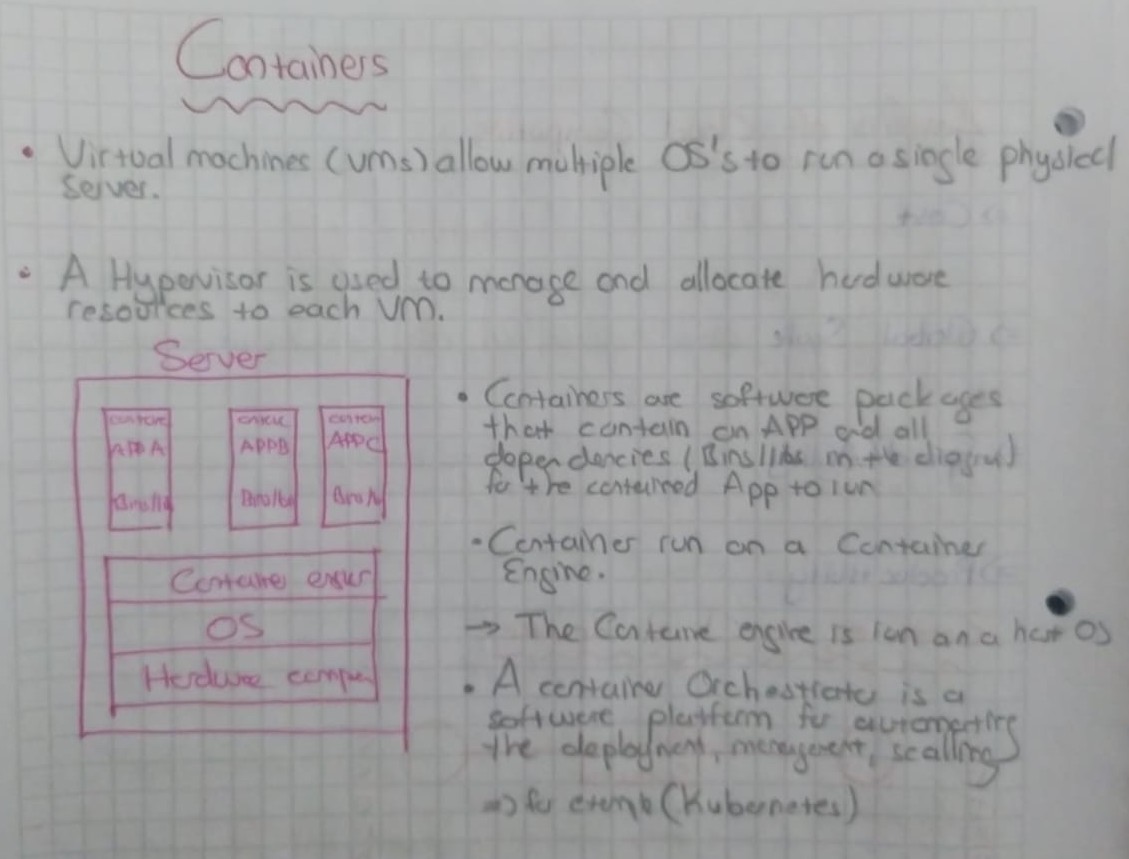 Containers
• Virtual machines (VMs) allow multiple OS's to run a single physical
server.
• A Hypervisor is used to manage and allocate hardware
resources to each VM.
Server
APP A
APPB
APPC
Bins/lib
Container
OS
Hardware
• Containers are software packages
that contain an APP and all
dependencies (Bins/libs in the diagram)
for the contained App to run
• Container run on a Container
Engine.
→ The Container engine is run on a host OS
• A container Orchestrator is a
software platform for automating
the deployment, management, scalling
=> for example (Kubernetes)